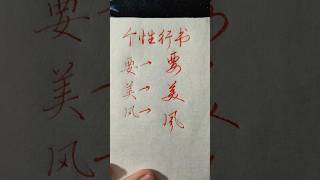 个性行书
要→要
美→美
风→風